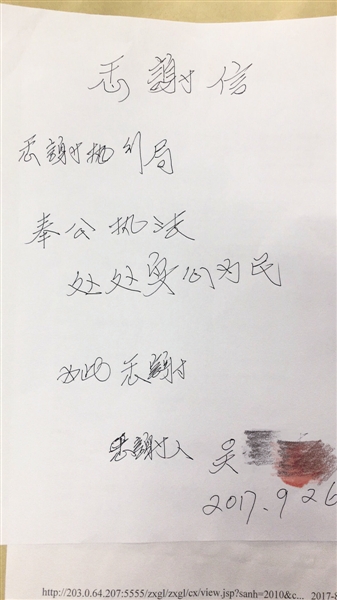 感謝信
感謝执行局
奉公执法
处处为民
为此感謝
感謝人 吴
2017.9 26
http://203.0.64.207:5555/zxgl/zxgl/cx/view.jsp?sanh=2010&c... 2017-8